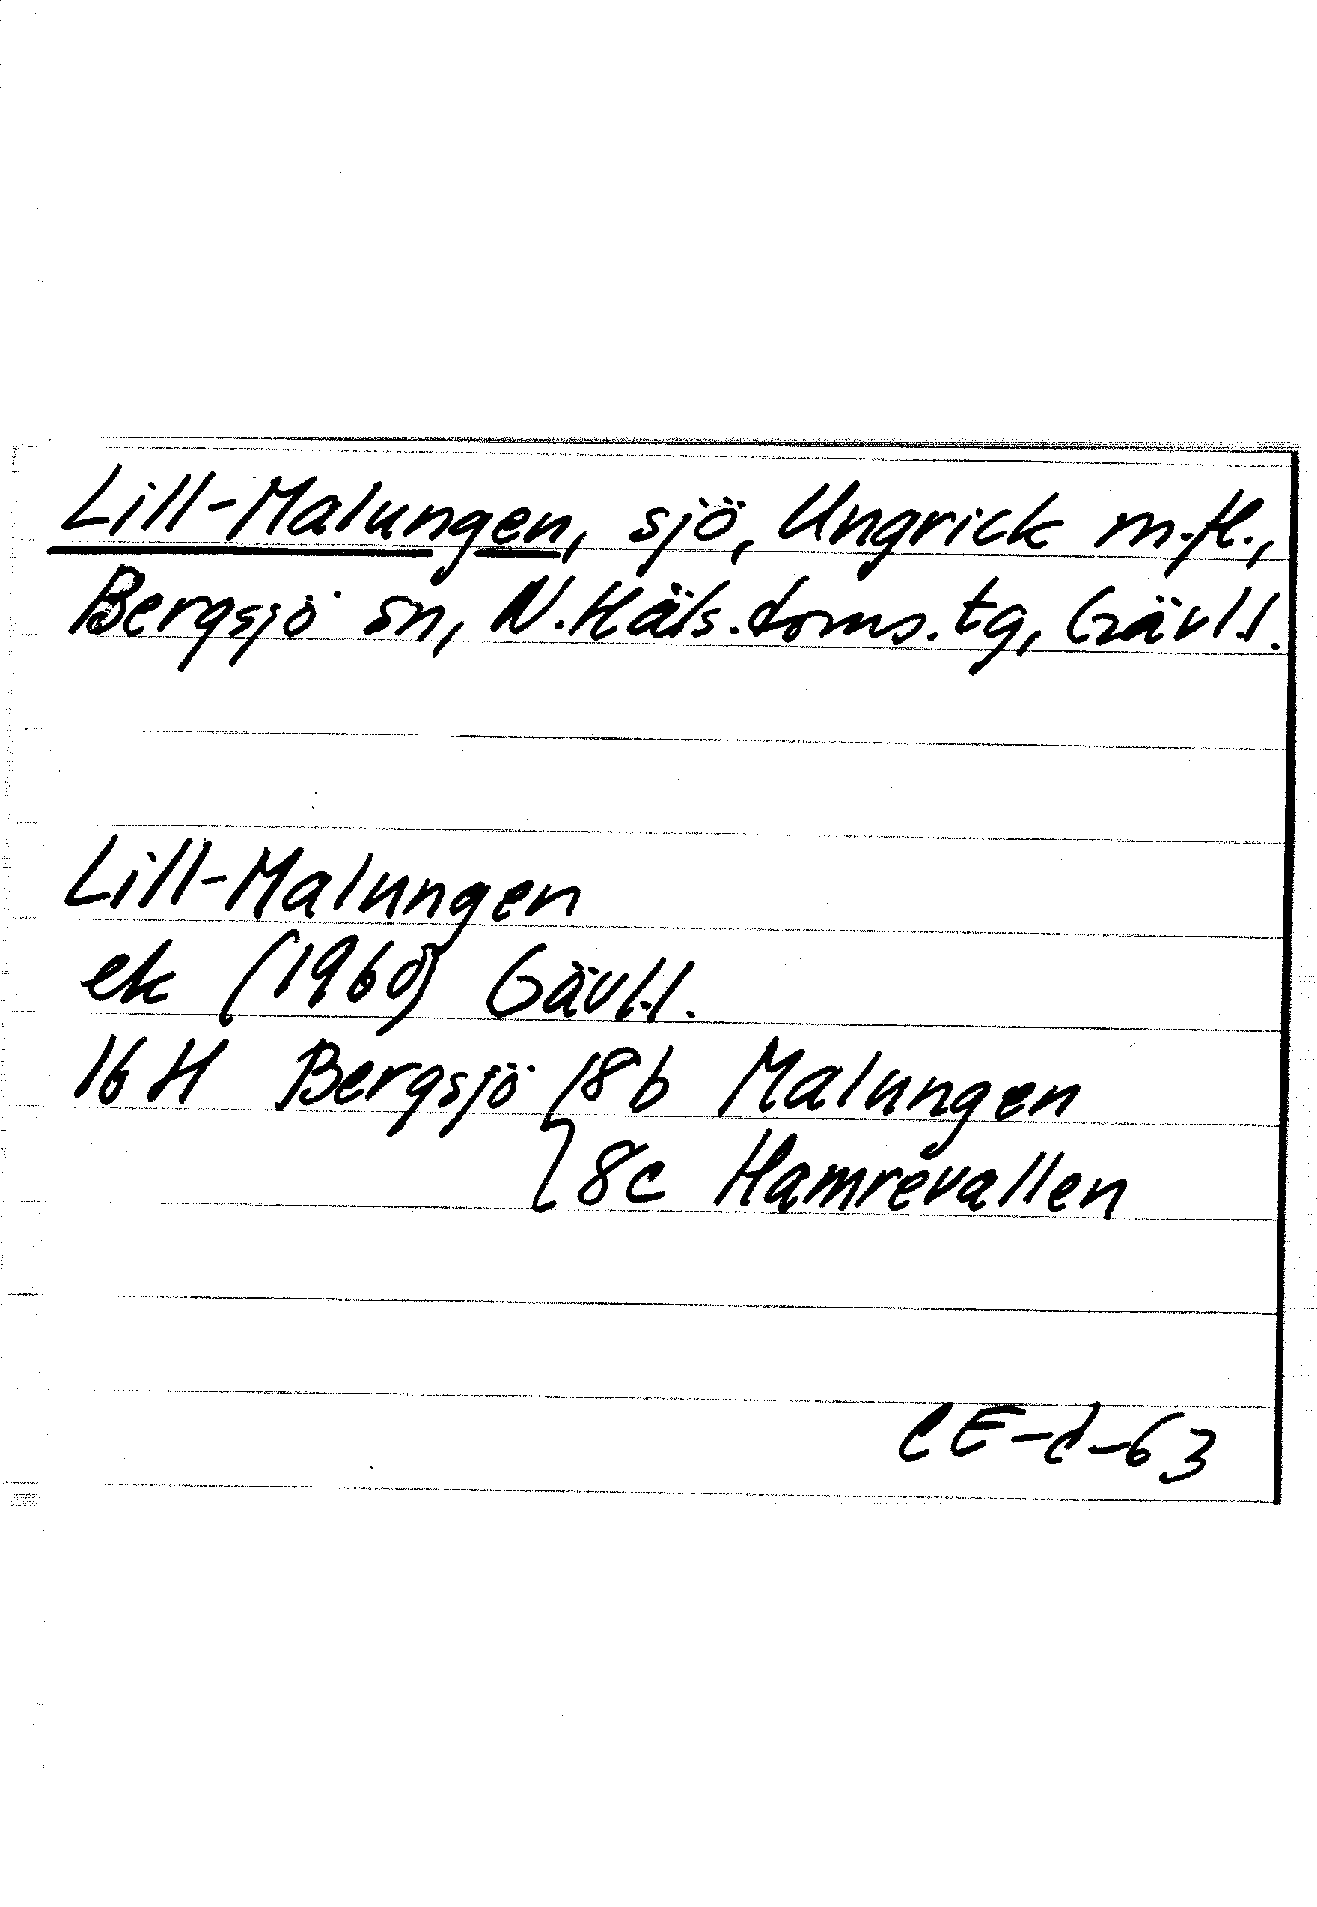 Lill-Malungen, sjö, Ungrick m.fl.,
Bergsjö sn, N.Häls.doms.tg, Gävl.l.
Lill-Malungen
ek (1960) Gävl.l.
16 H Bergsjö { 8b Malungen
8c Hamrevallen
CE-d-63